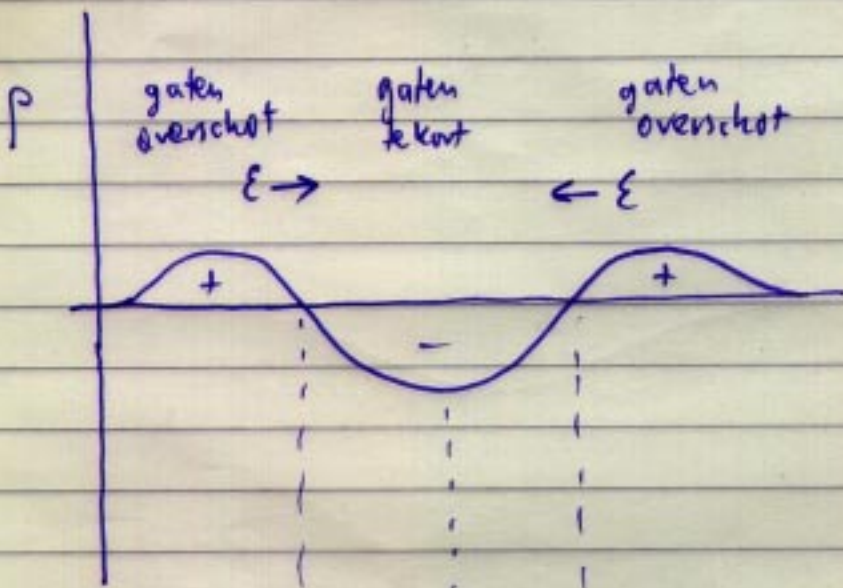 ρ
gaten
overschot
gaten
tekort
gaten
overschot
ε →
← ε
+
−
+